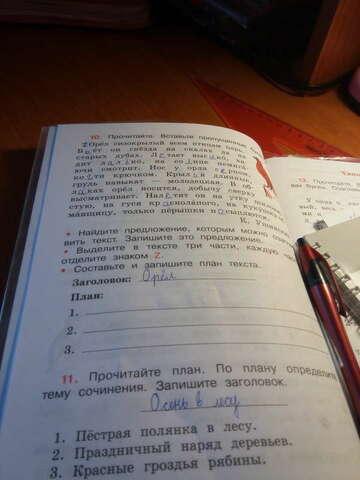 10. Прочитайте. Вставьте пропущенные
Орёл сизокрылый всем птицам
Вьёт он гнёзда на скалах да на
старых дубах. Летает высоко,
далеко, на солнце немига-
ючи смотрит. Нос у орла серпом,
когти крючком. Крылья длинные,
грудь навыкат — молодецкая. В об-
лаках орёл носится, добычу сверху
высматривает. Налетит он на утку
на гуся
только пёрышки посыплются.
К.
• Найдите предложение, которым можно
вить текст. Запишите это предложение.
• Выделите в тексте три части, каждую
отделите знаком Z.
• Составьте и запишите план текста.
Заголовок: Орёл
План:
1.
2.
3.
11. Прочитайте план. По плану определите
тему сочинения. Запишите заголовок.
Осень в лесу
1. Пёстрая полянка в лесу.
2. Праздничный наряд деревьев.
3. Красные гроздья рябины.
12. Прочитайте